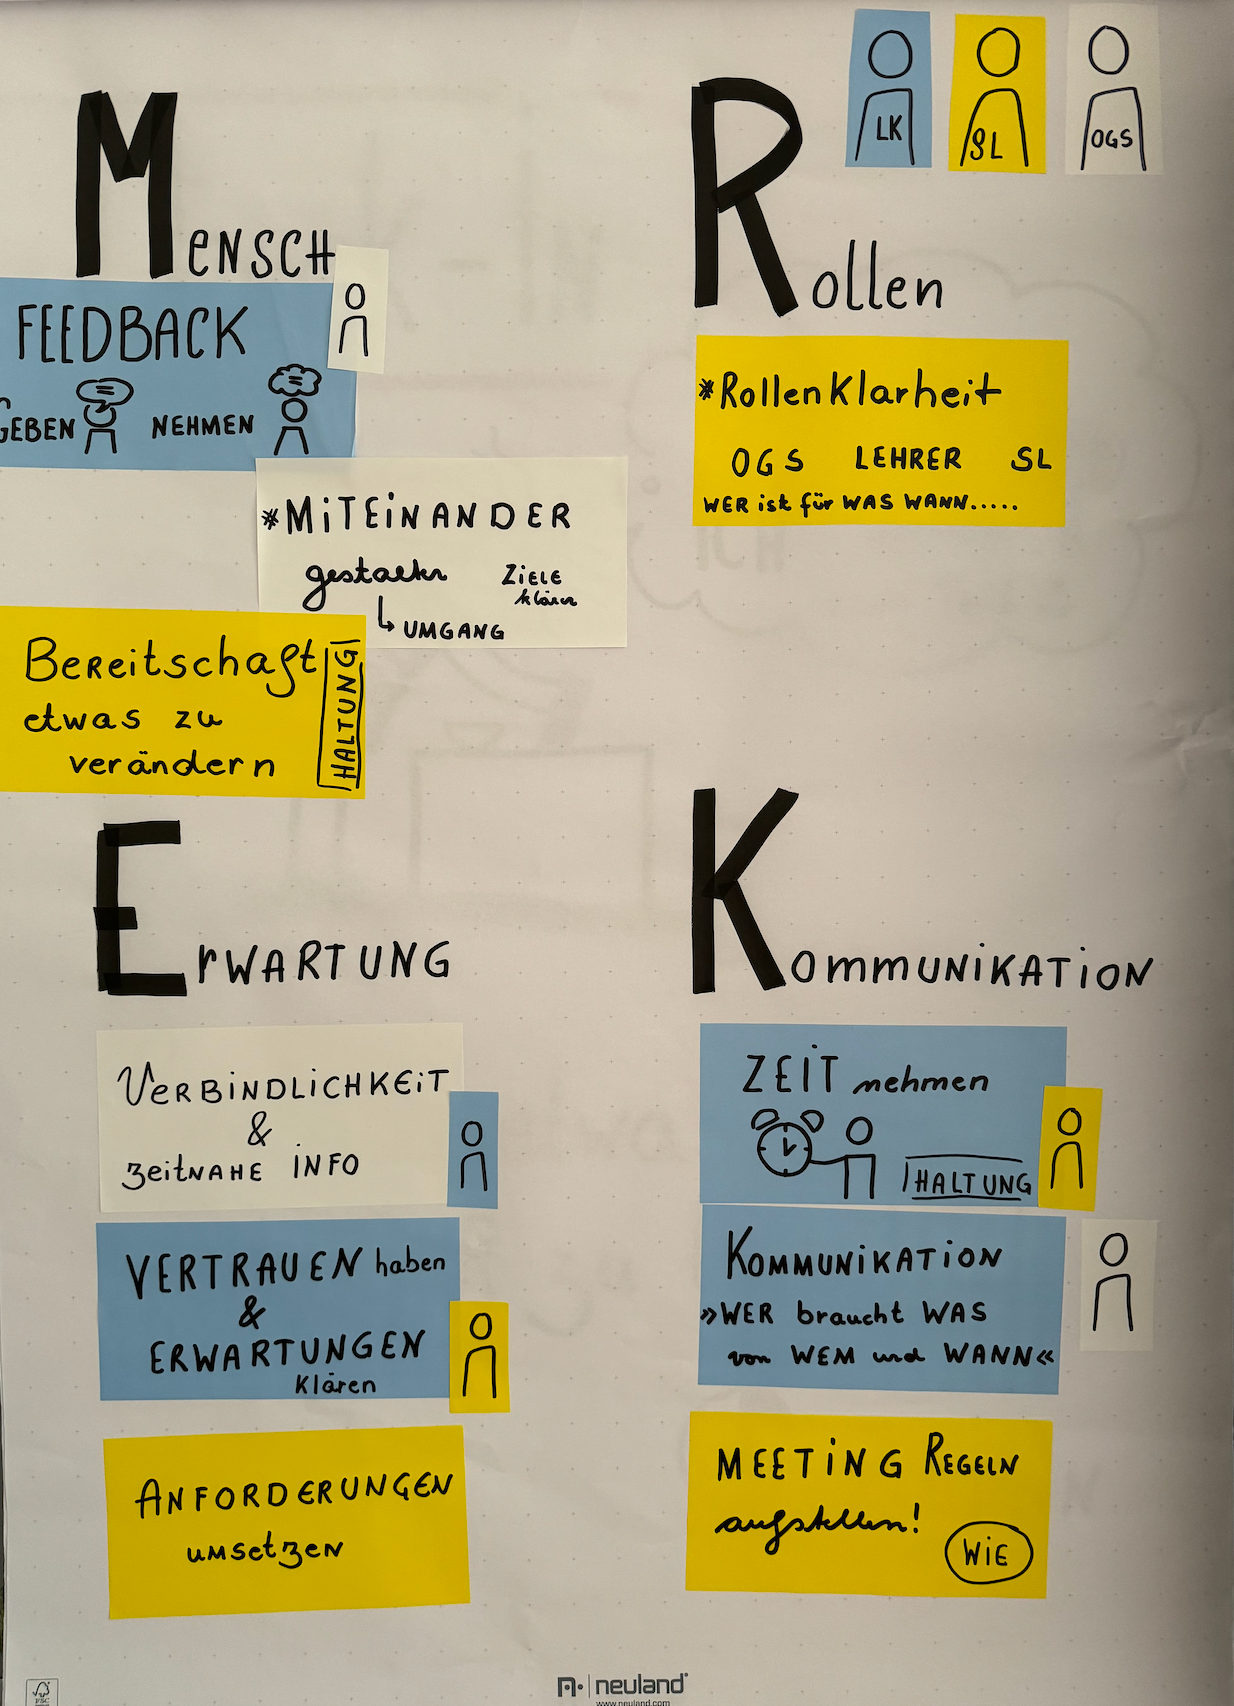 LK
SL
OGS
MENSCH
FEEDBACK
GEBEN NEHMEN
*MITEINANDER
gestalten ZIELE
klären
↳ UMGANG
Bereitschaft
etwas zu
verändern
HALTUNG
Rollen
*Rollenklarheit
OGS LEHRER SL
WER ist für WAS WANN.....
ERWARTUNG
VERBINDLICHKEIT
&
zeitNAHE INFO
VERTRAUEN haben
&
ERWARTUNGEN
klären
ANFORDERUNGEN
umsetzen
KOMMUNIKATION
ZEIT nehmen
HALTUNG
KOMMUNIKATION
»WER braucht WAS
von WEM und WANN«
MEETING REGELN
aufstellen!
WIE
FSC
neuland
www.neuland.com